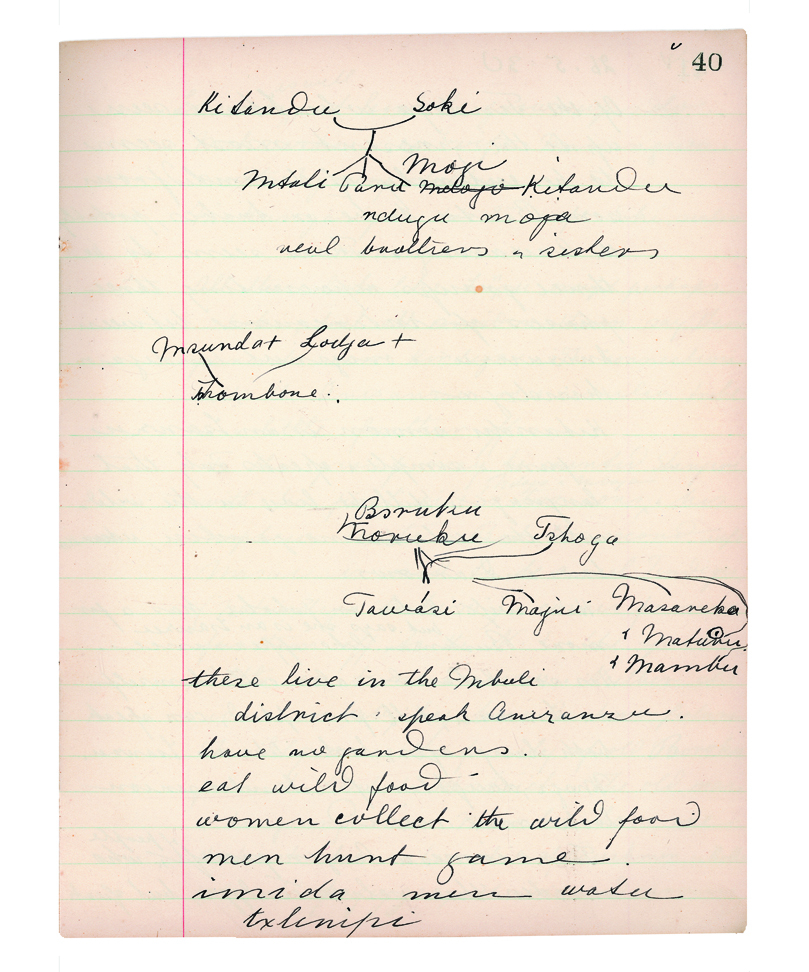 40
Kitandu Soki
Mogi
Mtali Kitandu
ndugu moja
real brothers & sisters
Lodja +
Trombone.
Boruku
Noruku Tshoga
Tawási Majui Masareka
& Maturu
& Mambu
these live in the Mbuli
district. speak
have no gardens.
eat wild food -
women collect the wild food
men hunt game.
imida men water